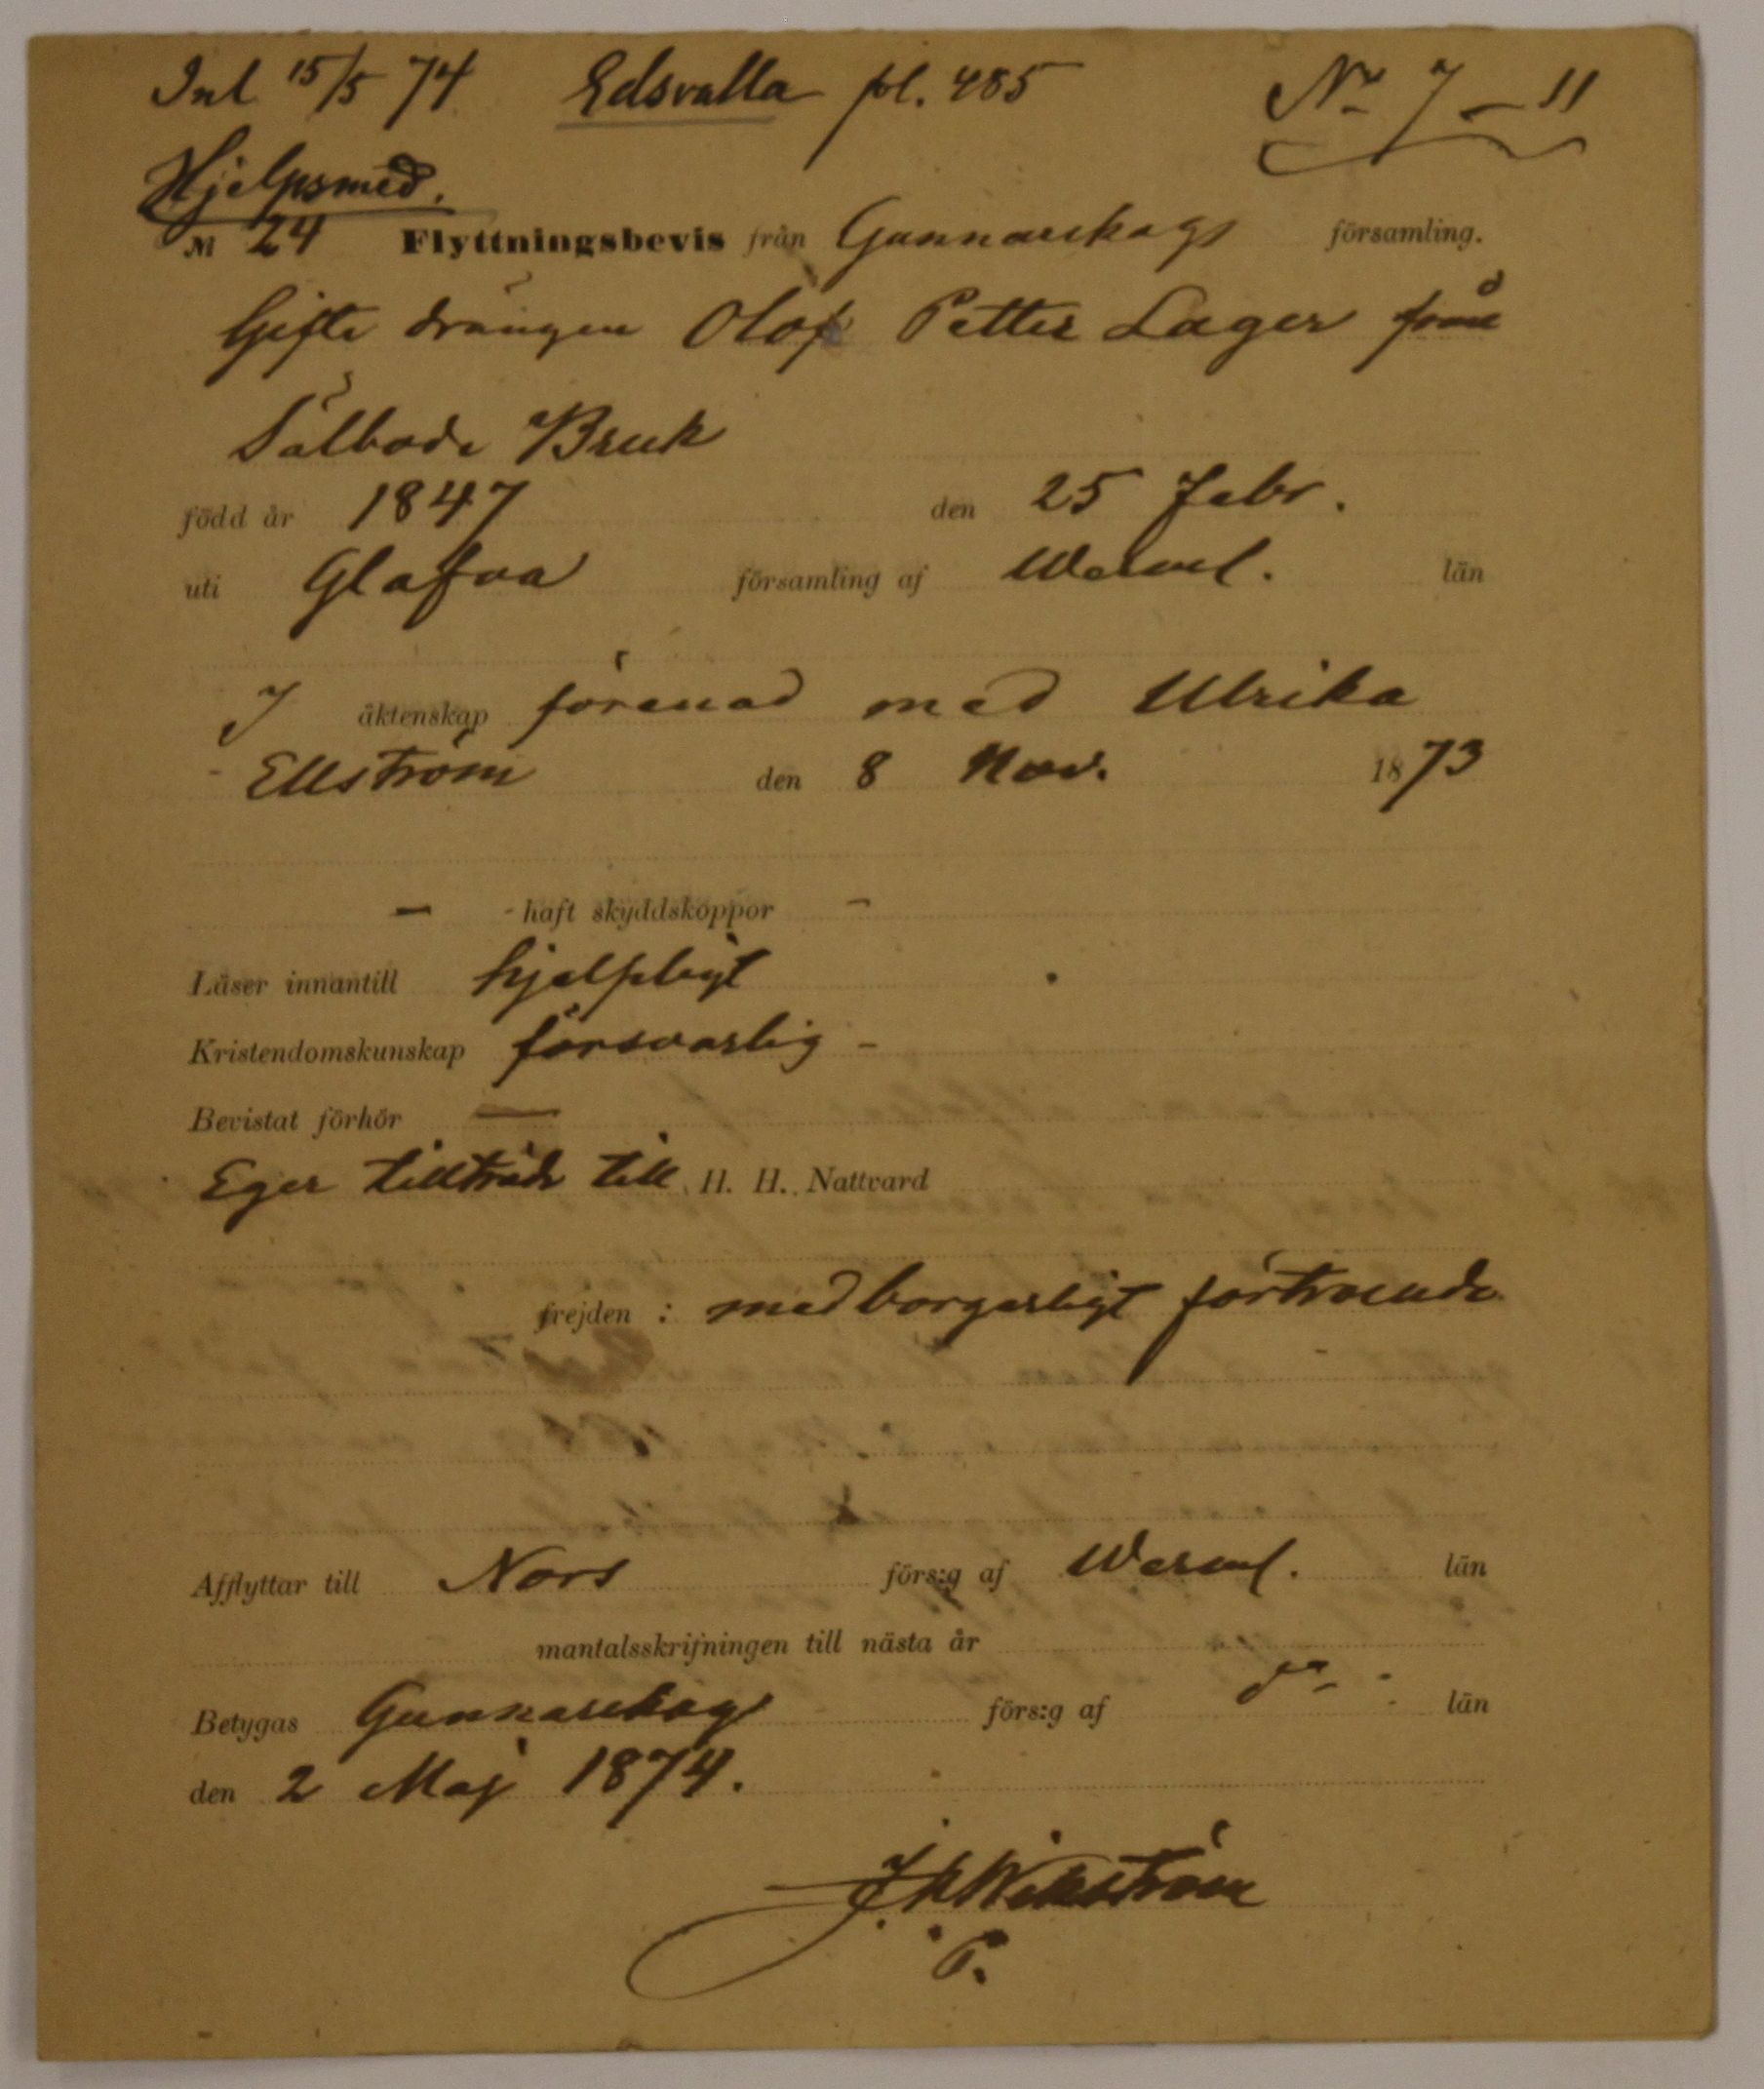 Inl 15/5 74 Edsvalla pl. 485 No 7–11
Hjelpsmed.
No 24 Flyttningsbevis från Gunnarskogs församling.
Gifte drängen Olof Petter Lager från
Sälboda Bruk
född år 1847 den 25 Febr.
uti Glafva församling af Werml. län
I äktenskap förenad med Ulrika
Ellström den 8 Nov. 1873
– haft skyddskoppor –
Läser innantill hjelpligt
Kristendomskunskap försvarlig –
Bevistat förhör —
Eger tillträde till H. H. Nattvard
frejden : medborgerligt förtroende
Afflyttar till Nors förs:g af Werml. län
mantalsskrifningen till nästa år
Betygas Gunnarskogs förs:g af do län
den 2 Maj 1874.
Wikström
P.